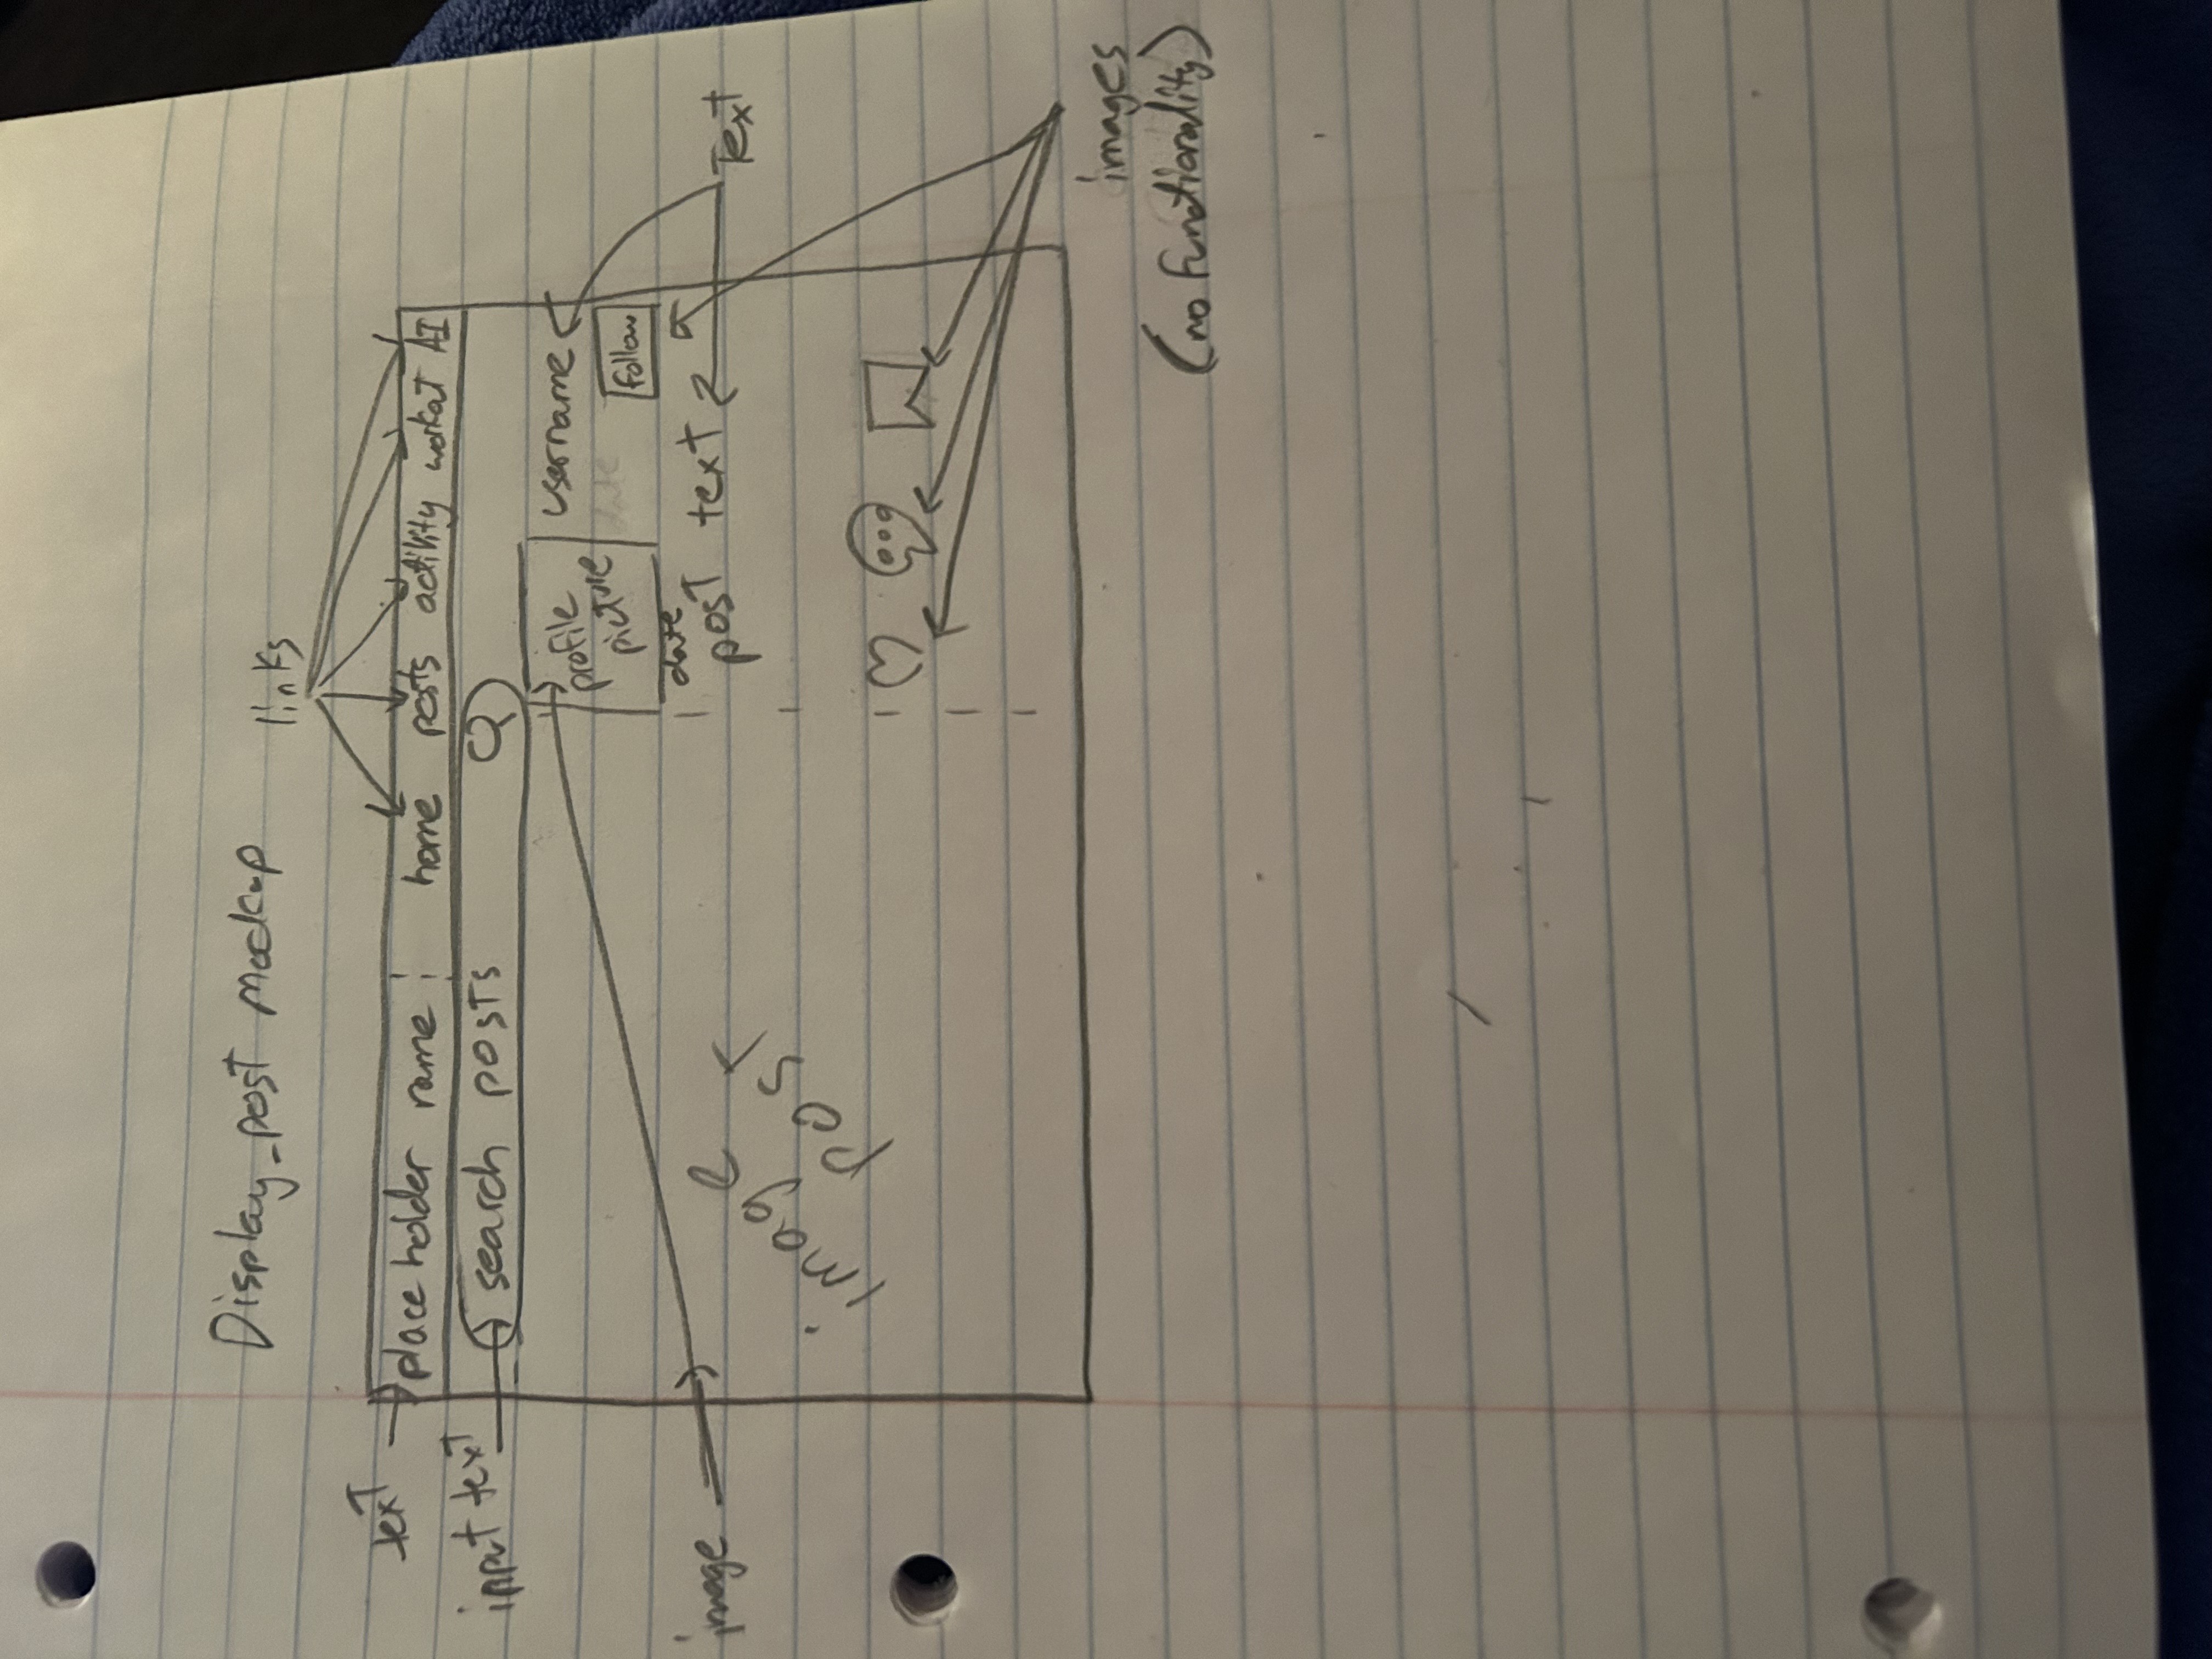 Display_post mockup
links
text
place holder name home posts activity workout AI
input text
search posts
profile picture
username
date
follow
date
post text
Text
image
image
post
images
(no functionality)